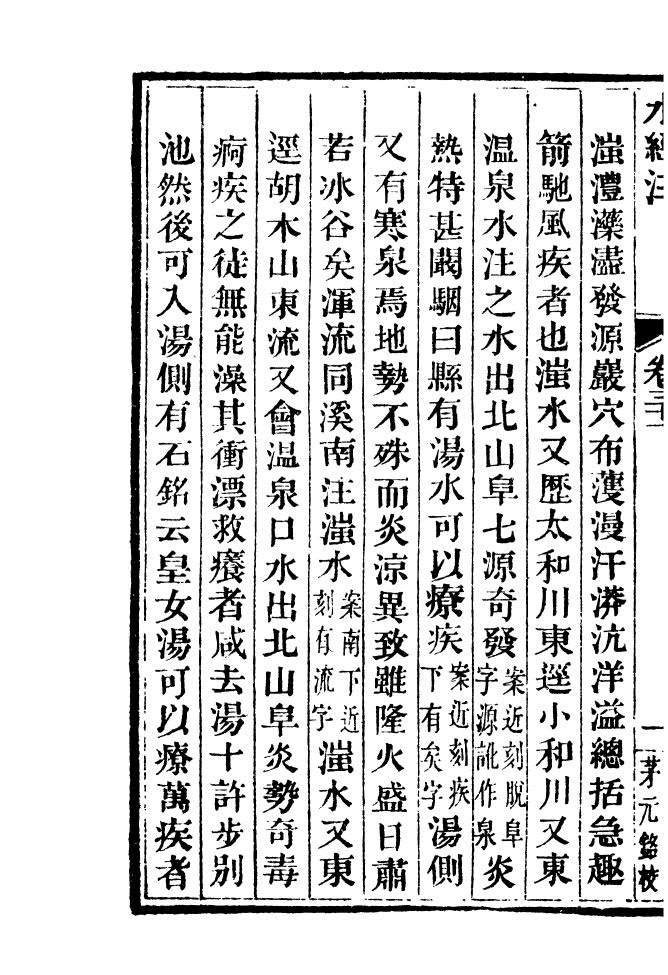 水經注 卷三十一 一 茅元銘校
滍澧灤濜發源巖穴布濩漫汗漭沆洋溢總括急趣
箭馳風疾者也滍水又歷太和川東逕小和川又東
溫泉水注之水出北山阜七源奇發案近刻脫阜字源訛作泉炎
熱特甚闞駰曰縣有湯水可以療疾案近刻疾下有矣字湯側
又有寒泉焉地勢不殊而炎涼異致雖隆火盛日肅
若冰谷矣渾流同溪南注滍水案南下近刻有流字滍水又東
逕胡木山東流又會溫泉口水出北山阜炎勢奇毒
痾疾之徒無能澡其衝漂救癢者咸去湯十許步別
池然後可入湯側有石銘云皇女湯可以療萬疾者